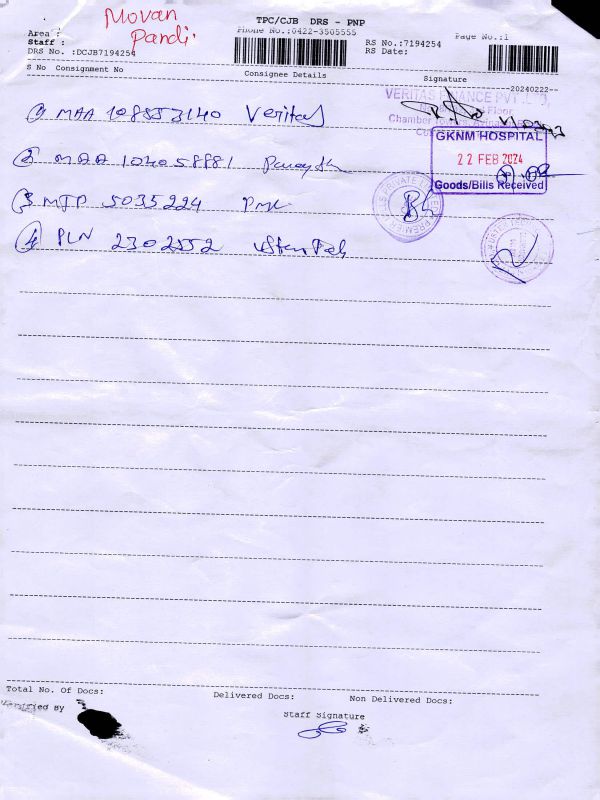 Movan
Pandi.
TPC/CJB DRS - PNP
Area :
Phone No.:0422-3505555
Page No.:1
Staff :
RS No.:7194254
DRS No. :DCJB7194254
RS Date:
S No Consignment No
Consignee Details
Signature
--20240222--
VERITAS FINANCE PVT. LTD,
Floor
Chamber
① MAA 108553140 Veritas
GKNM HOSPITAL
22 FEB 2024
Goods/Bills Received
② MAA 104058881
③ MJP 5035224 PMC
④ PLN 2302552
Total No. Of Docs:
Delivered Docs:
Non Delivered Docs:
Verified By
Staff Signature